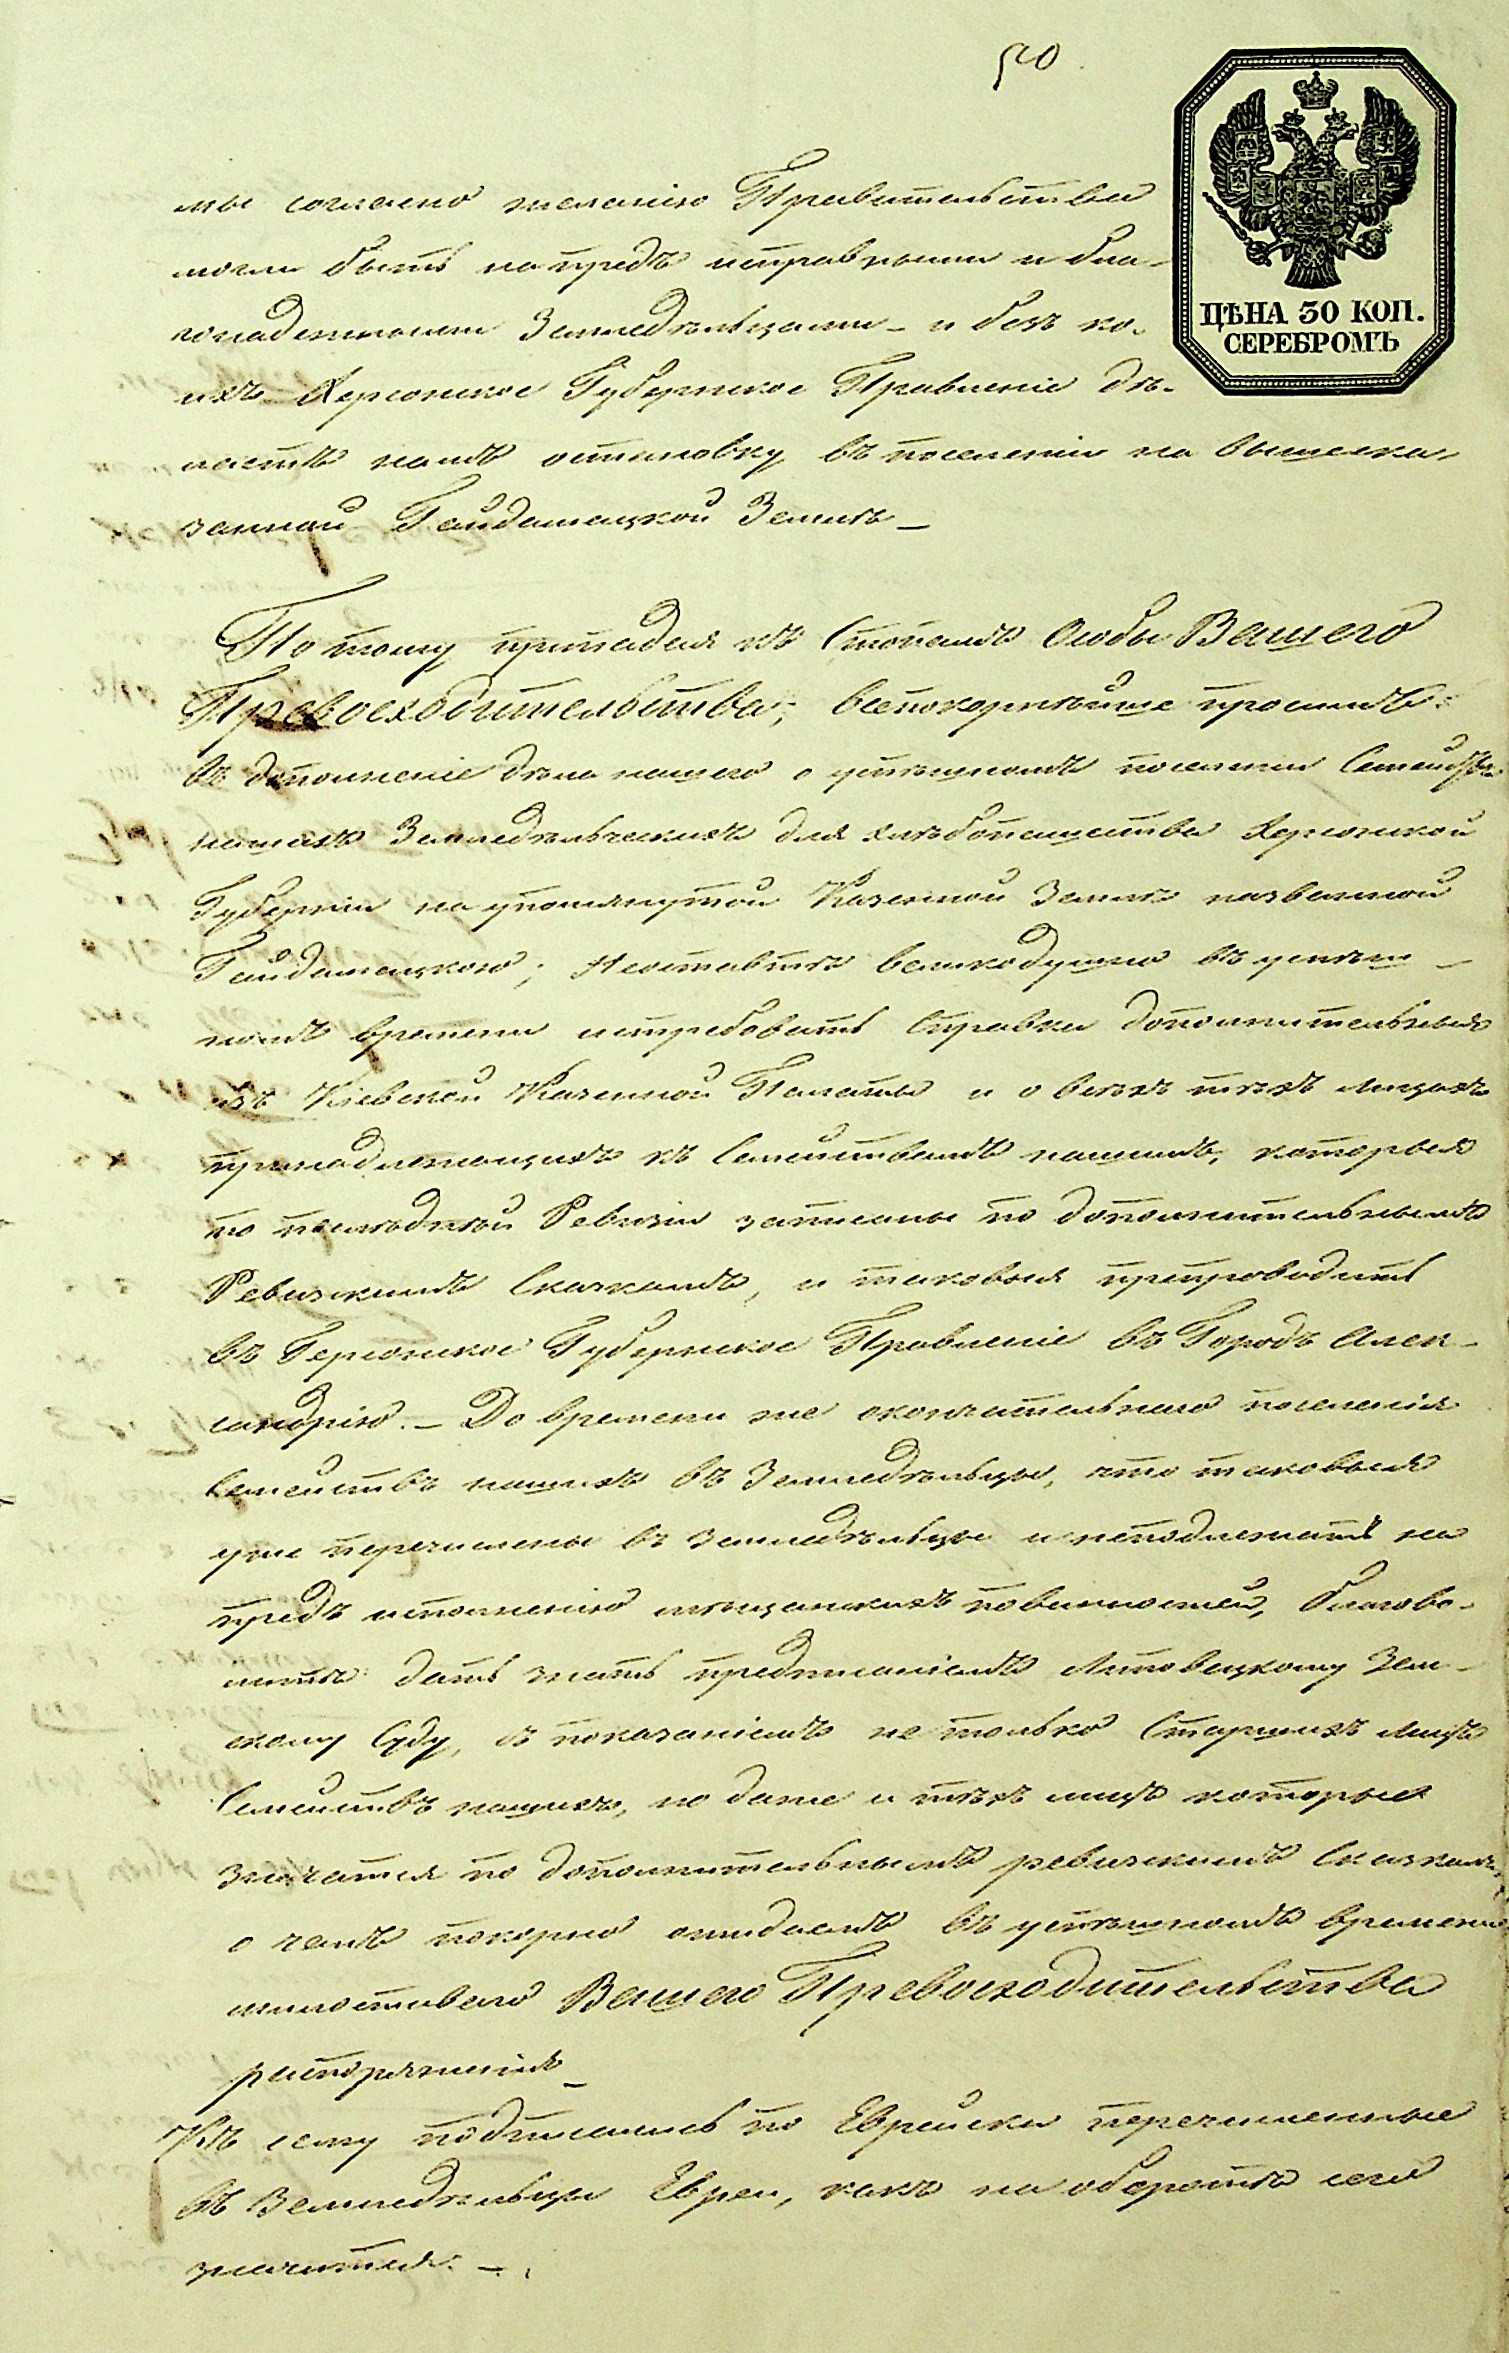 50
ЦѢНА 30 КОП.
СЕРЕБРОМЪ
мы согласно желанію Правительства
могли быть на предъ исправными и бла-
гонадежными Земледѣльцами – и безъ ко-
ихъ Херсонское Губернское Правленіе дѣ-
лаетъ намъ остановку въ поселеніи на вышеска-
занной Гайдамацкой Землѣ –
По тому припадая къ Стопамъ Особы Вашего
Превосходительства, всепокорнѣйше просимъ:
въ дополненіе дѣла нашего о успѣшномъ поселеніи Семействъ
нашихъ Земледѣльческихъ для хлѣбопашества Херсонской
Губерніи на упомянутой Казенной Землѣ названной
Гайдамацкою; Неоставить великодушно въ успѣш-
номъ времени истребовать Справки дополнительныя
изъ Кіевской Казенной Палаты и о всѣхъ тѣхъ лицахъ
принадлежащихъ къ Семействамъ нашимъ, которыя
по послѣдней Ревизіи записаны по дополнительнымъ
Ревизскимъ Сказкамъ, и таковыя препроводить
въ Херсонское Губернское Правленіе въ Городъ Алек-
сандрію. – До времени же окончательнаго поселенія
Семействъ нашихъ въ Земледѣльцы, что таковыя
уже перечислены въ земледѣльцы и неподлежатъ на
предъ исполненію мѣщанскихъ повинностей, благово-
лить дать знать предписаніемъ Липовецкому Зем-
скому Суду, съ показаніемъ не только Старшихъ лицъ
Семействъ нашихъ, но даже и тѣхъ лицъ которые
значатся по дополнительнымъ ревизскимъ Сказкамъ,
о чемъ покорно ожидаемъ въ успѣшномъ времени
милостиваго Вашего Превосходительства
распоряженія –
Къ сему подписались по Еврейски перечисленные
въ Земледѣльцы Евреи, какъ на оборотѣ сего
значится. –